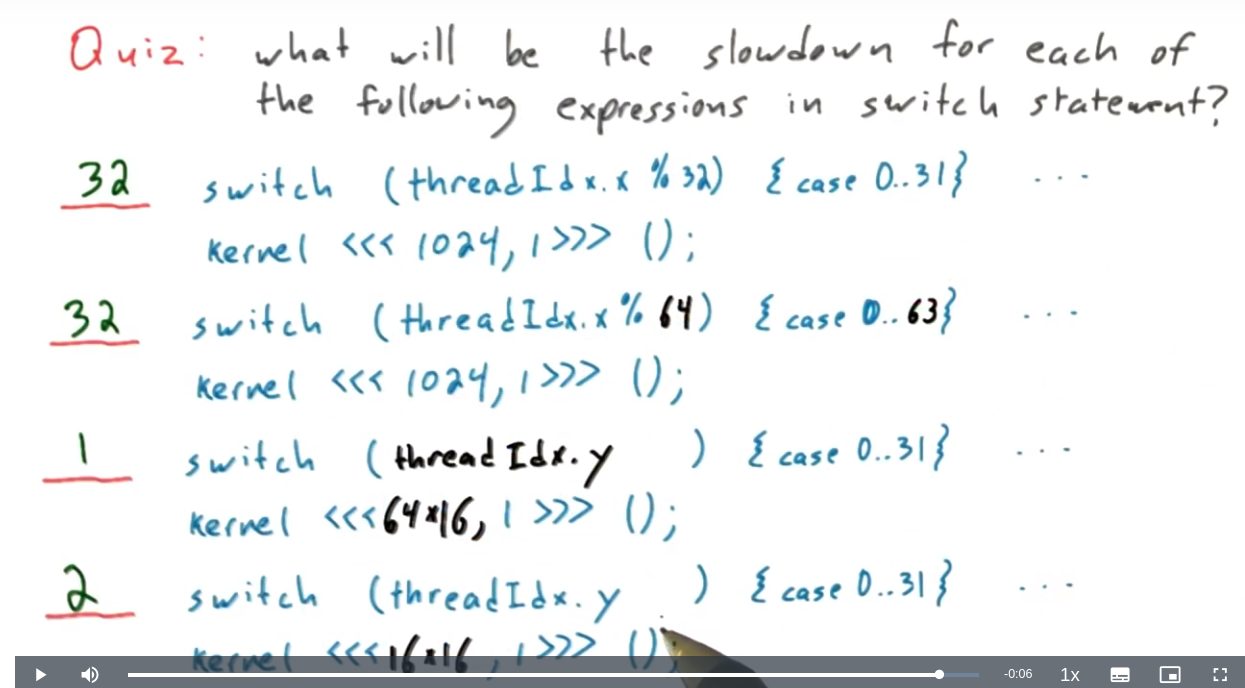 Quiz: what will be the slowdown for each of
the following expressions in switch statement?
32 switch (threadIdx.x % 32) { case 0..31} ...
kernel <<< 1024, 1 >>> ();
32 switch (threadIdx.x % 64) { case 0..63} ...
kernel <<< 1024, 1 >>> ();
1 switch (threadIdx.y ) { case 0..31} ...
kernel <<< 64*16, 1 >>> ();
2 switch (threadIdx.y ) { case 0..31} ...
kernel <<< 16*16, 1 >>> ();
-0:06 1x